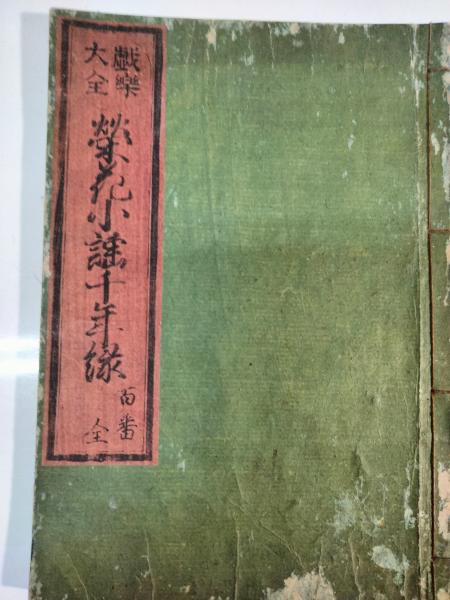 戯樂大全
榮花小謡千年緑
百番
全